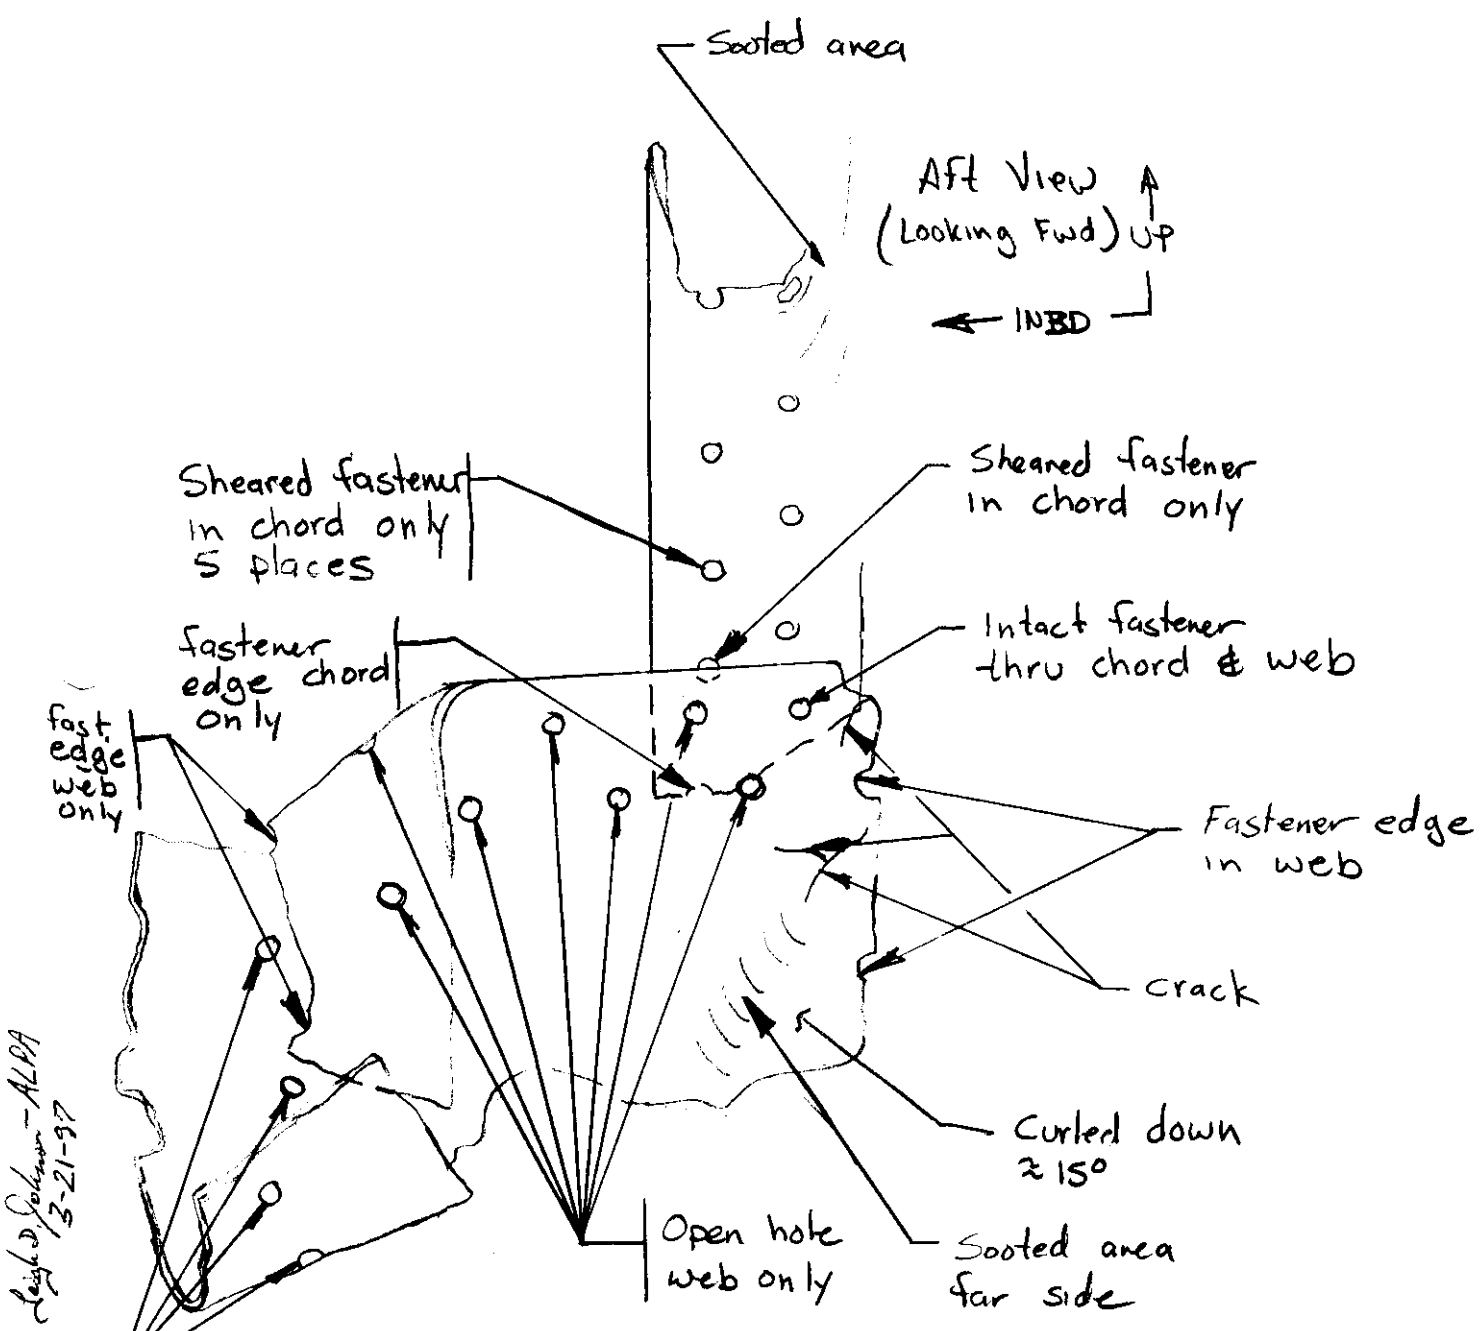 Sooted area
Aft View
(Looking Fwd) UP
INBD
Sheared fastener
in chord only
5 places
Sheared fastener
in chord only
fastener
edge chord
only
Intact fastener
thru chord & web
fast
edge
web
only
Fastener edge
in web
crack
Curled down
≈ 15°
Open hole
web only
Sooted area
far side
Leigh D. Johnson - ALPA
3-21-97